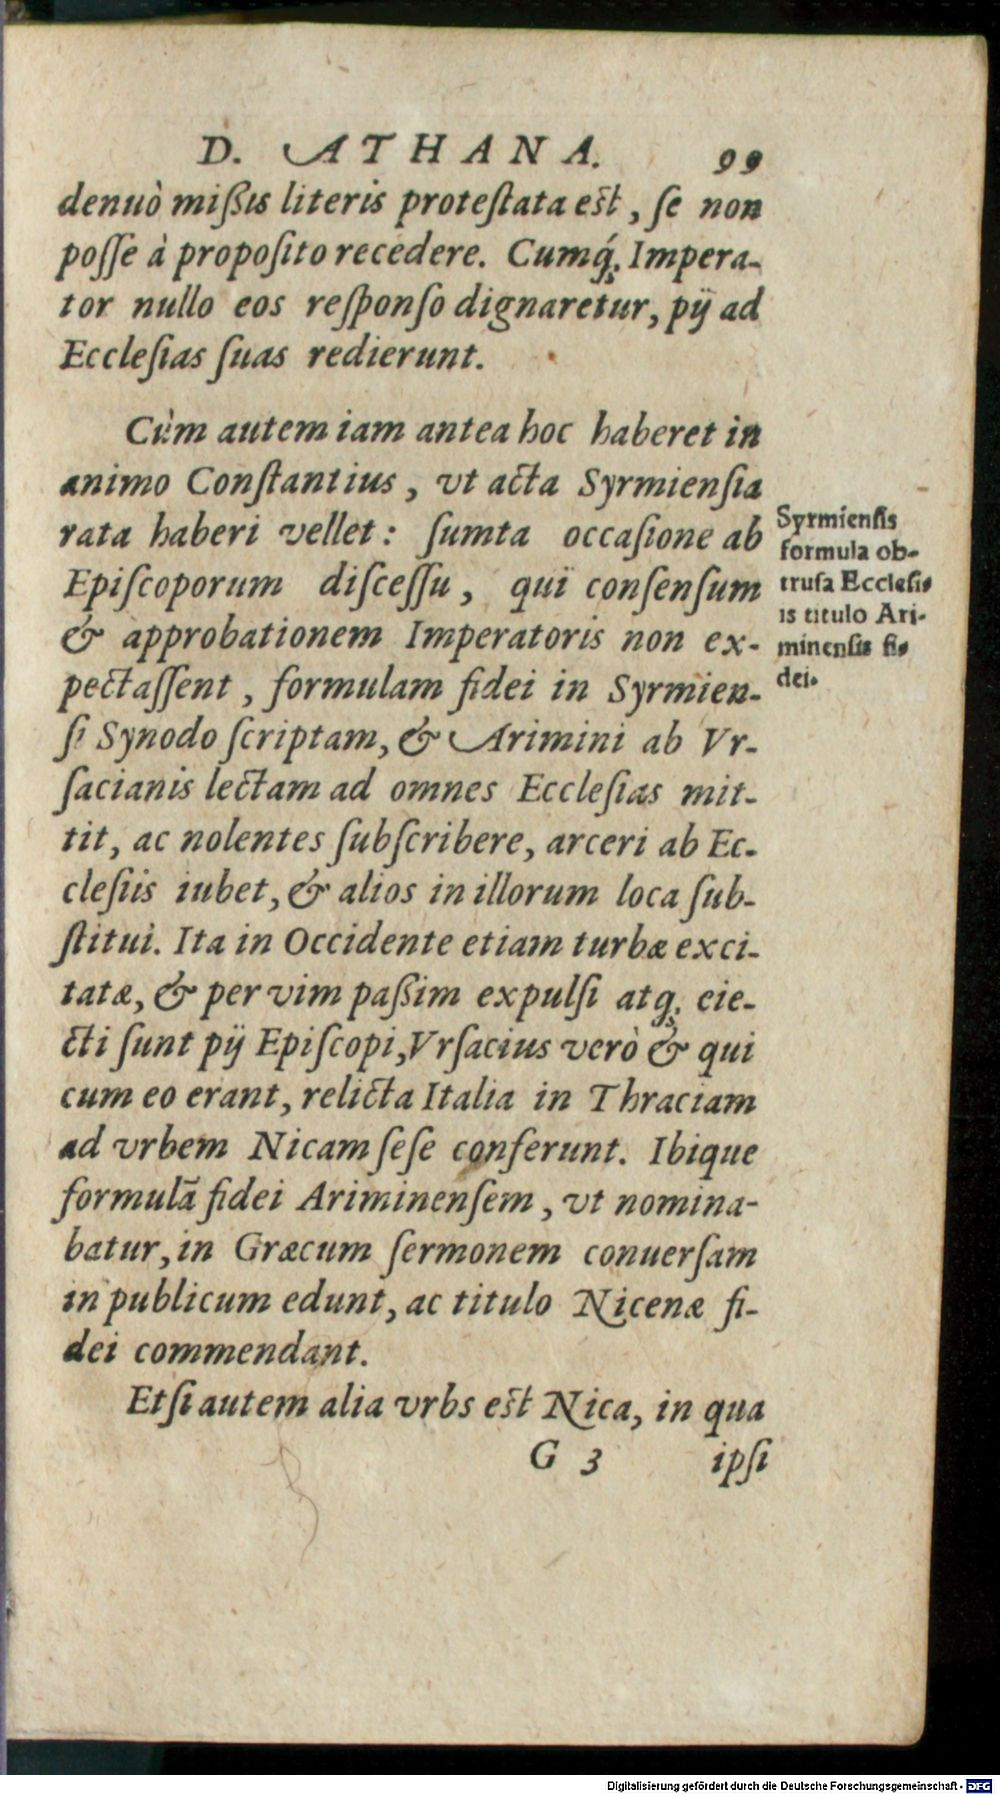 D. ATHANA. 99
denuò mißis literis proteſtata eſt, ſe non
poſſe à propoſito recedere. Cumq́; Impera-
tor nullo eos reſponſo dignaretur, pij ad
Eccleſias ſuas redierunt.
Cùm autem iam antea hoc haberet in
animo Conſtantius, vt acta Syrmienſia
rata haberi vellet: ſumta occaſione ab
Epiſcoporum diſceſſu, qui conſenſum
& approbationem Imperatoris non ex-
pectaſſent, formulam fidei in Syrmien-
ſi Synodo ſcriptam, & Arimini ab Vr-
ſacianis lectam ad omnes Eccleſias mit-
tit, ac nolentes ſubſcribere, arceri ab Ec-
cleſiis iubet, & alios in illorum loca ſub-
ſtitui. Ita in Occidente etiam turbæ exci-
tatæ, & per vim paßim expulſi atq; eie-
cti ſunt pij Epiſcopi, Vrſacius verò & qui
cum eo erant, relicta Italia in Thraciam
ad vrbem Nicam ſeſe conferunt. Ibique
formulã fidei Ariminenſem, vt nomina-
batur, in Græcum ſermonem conuerſam
in publicum edunt, ac titulo Nicenæ fi-
dei commendant.
Etſi autem alia vrbs eſt Nica, in qua
G 3 ipſi
Syrmienſis
formula ob-
truſa Eccleſi-
is titulo Ari-
minenſis fi-
dei.
Digitalisierung gefördert durch die Deutsche Forschungsgemeinschaft - DFG